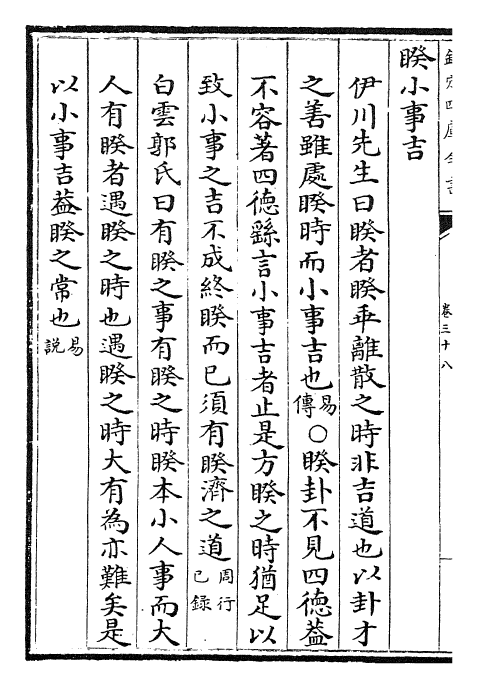 欽定四庫全書
卷三十八
睽小事吉
伊川先生曰睽者睽乖離散之時非吉道也以卦才
之善雖處睽時而小事吉也易傳○睽卦不見四德蓋
不容著四德繇言小事吉者止是方睽之時猶足以
致小事之吉不成終睽而已須有睽濟之道周行已錄
白雲郭氏曰有睽之事有睽之時睽本小人事而大
人有睽者遇睽之時也遇睽之時大有為亦難矣是
以小事吉葢睽之常也易說